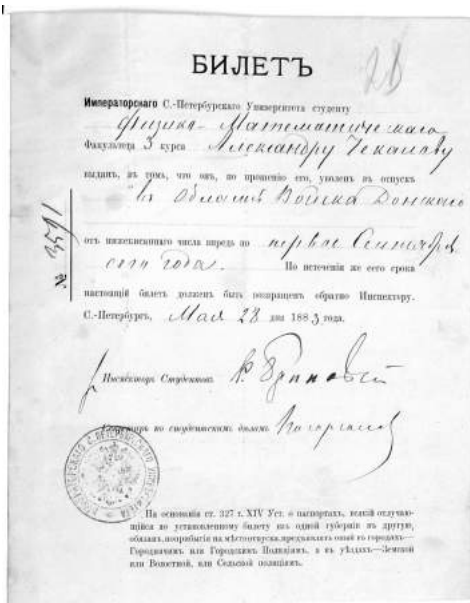 БИЛЕТЪ
28
Императорскаго С.-Петербургскаго Университета студенту
Физико-Математическаго
Факультета 3 курса Александру Чекалову
выданъ, въ томъ, что онъ, по прошенію его, уволенъ въ отпускъ
въ Область Войска Донскаго
отъ нижеписаннаго числа впредь по первое Сентября
сего года. По истеченіи же сего срока
настоящій билетъ долженъ быть возвращенъ обратно Инспектору.
С.-Петербургъ, Мая 28 дня 1883 года.
№ 3591
Инспекторъ Студентовъ
Секретарь по студенческимъ дѣламъ
На основаніи ст. 327 т. XIV Уст. о паспортахъ, всякій отлучаю-
щійся по установленному билету изъ одной губерніи въ другую,
обязанъ, по прибытіи на мѣсто отпуска, предъявлять оный въ городахъ—
Городничимъ или Городскимъ Полиціямъ, а въ уѣздахъ—Земской
или Волостной, или Сельской полиціямъ.